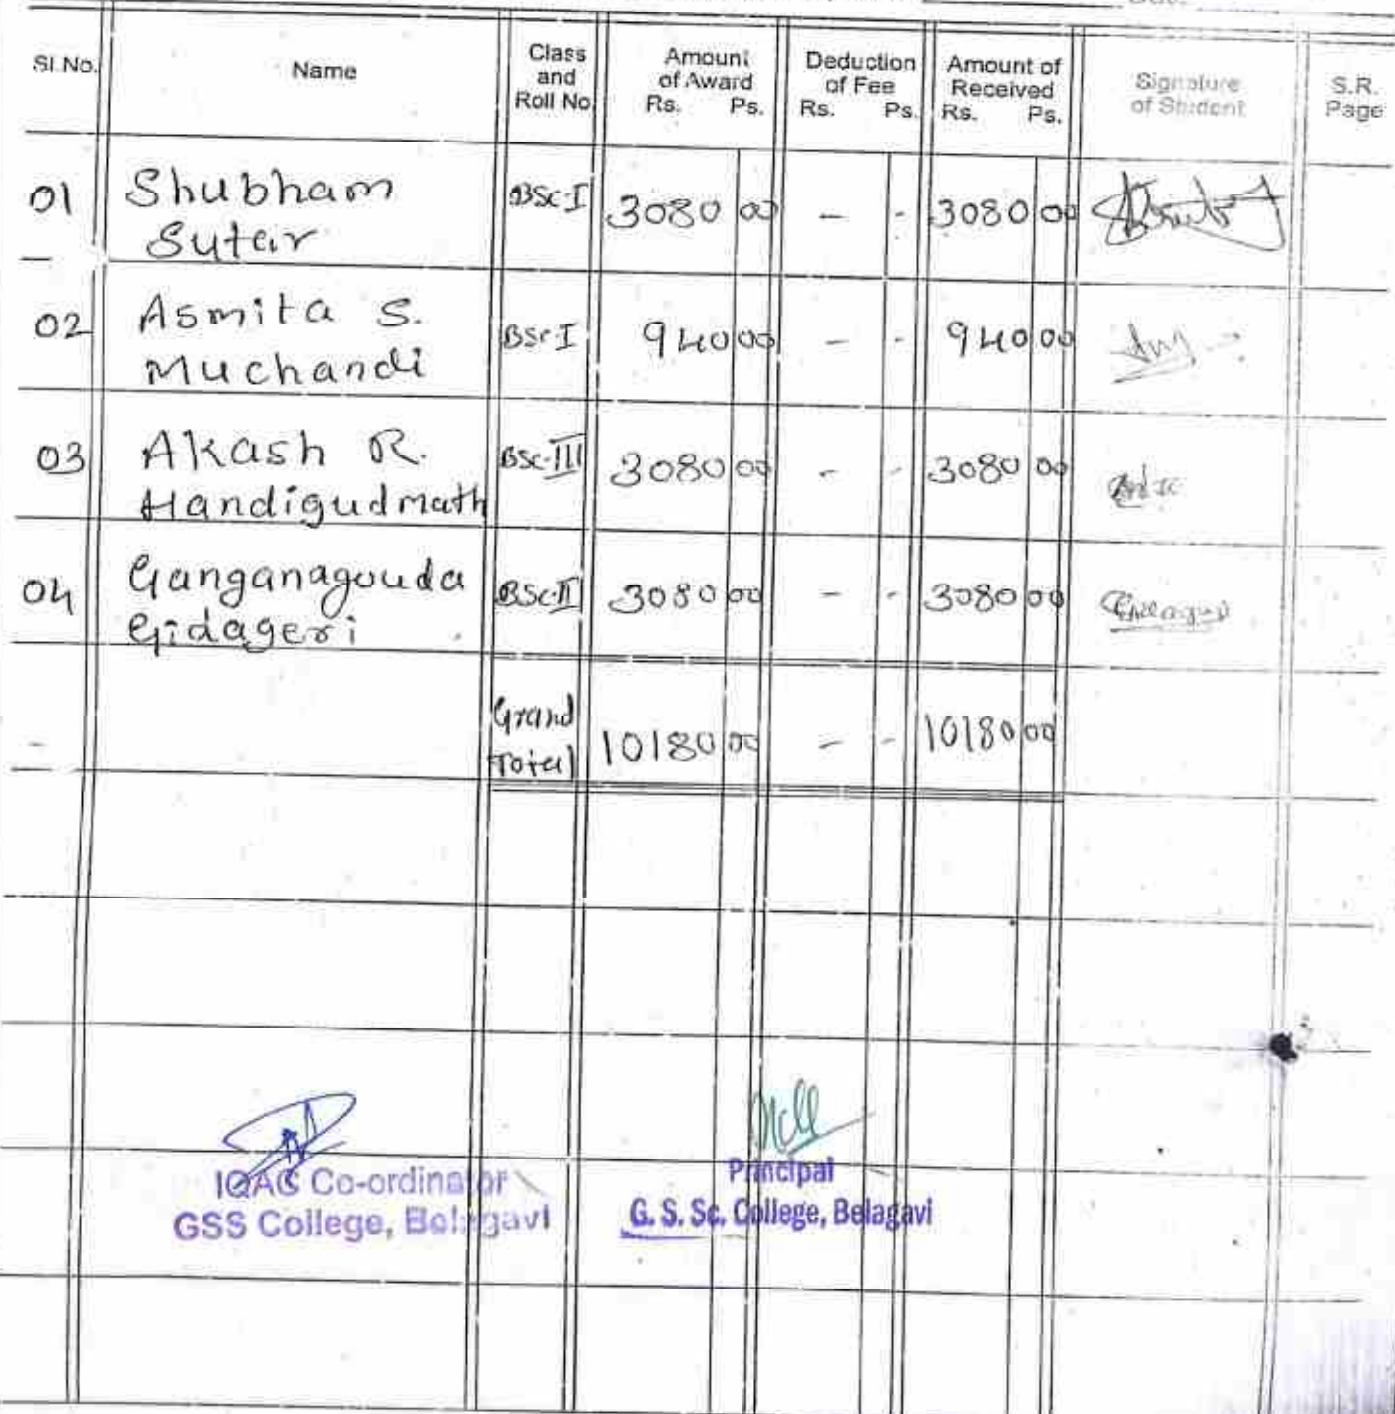 Sl.No. Name Class and Roll No. Amount of Award Rs. Ps. Deduction of Fee Rs. Ps. Amount of Received Rs. Ps. Signature of Student S.R. Page
01 Shubham Sutar BSc-I 3080 00 - - 3080 00
02 Asmita S. Muchandi BSc-I 940 00 - - 940 00
03 Akash R. Handigudmath BSc-III 3080 00 - - 3080 00
04 Ganganagouda Gidageri BSc-II 3080 00 - - 3080 00
Grand Total 10180 00 - - 10180 00
IQAC Co-ordinator
GSS College, Belagavi
Principal
G. S. Sc. College, Belagavi